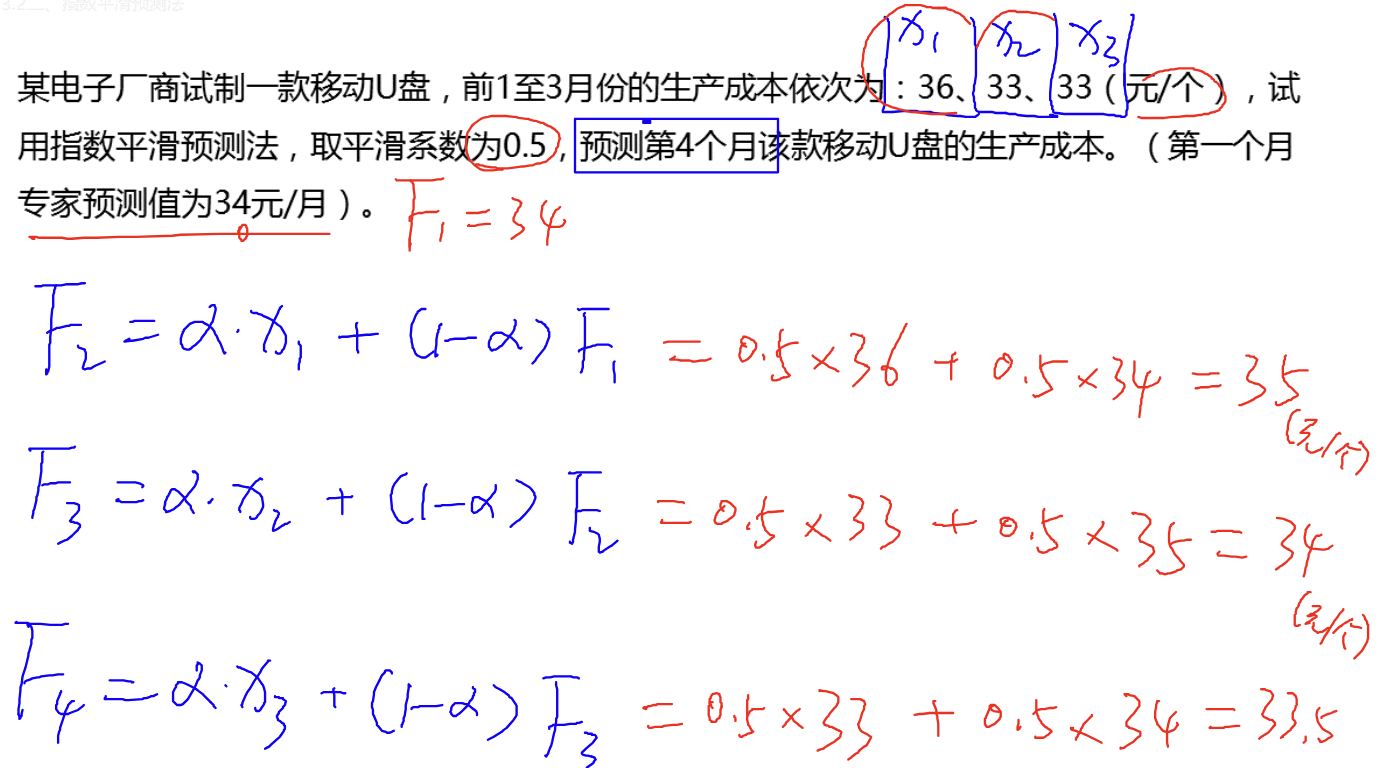 3.2二、指数平滑预测法
x₁ x₂ x₃
某电子厂商试制一款移动U盘，前1至3月份的生产成本依次为：36、33、33（元/个），试
用指数平滑预测法，取平滑系数为0.5，预测第4个月该款移动U盘的生产成本。（第一个月
专家预测值为34元/月）。 F₁=34
F₂=α·x₁+(1-α)F₁ =0.5×36+0.5×34=35
(元/个)
F₃=α·x₂+(1-α)F₂ =0.5×33+0.5×35=34
(元/个)
F₄=α·x₃+(1-α)F₃ =0.5×33+0.5×34=33.5